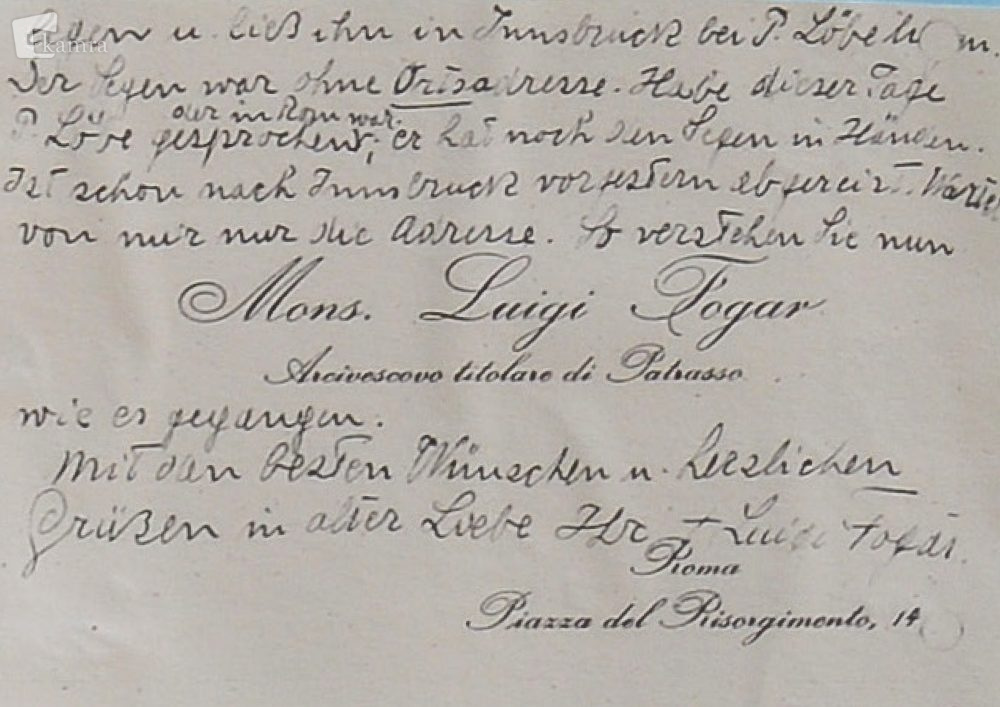 kamra
u. ließ ihn in Innsbruck bei P. Löbe
Der Segen war ohne Ortsadresse. Habe dieser Tage
der in Rom war
P. Löbe gesprochen; er hat noch den Segen in Händen.
Ist schon nach Innsbruck vorgestern abgereist. Wartet
von mir nur die Adresse. So verstehen Sie nun
Mons. Luigi Fogar
Arcivescovo titolare di Patrasso
wie es gegangen.
Mit den besten Wünschen u. herzlichen
Grüßen in alter Liebe Ihr + Luigi Fogar.
Roma
Piazza del Risorgimento, 14